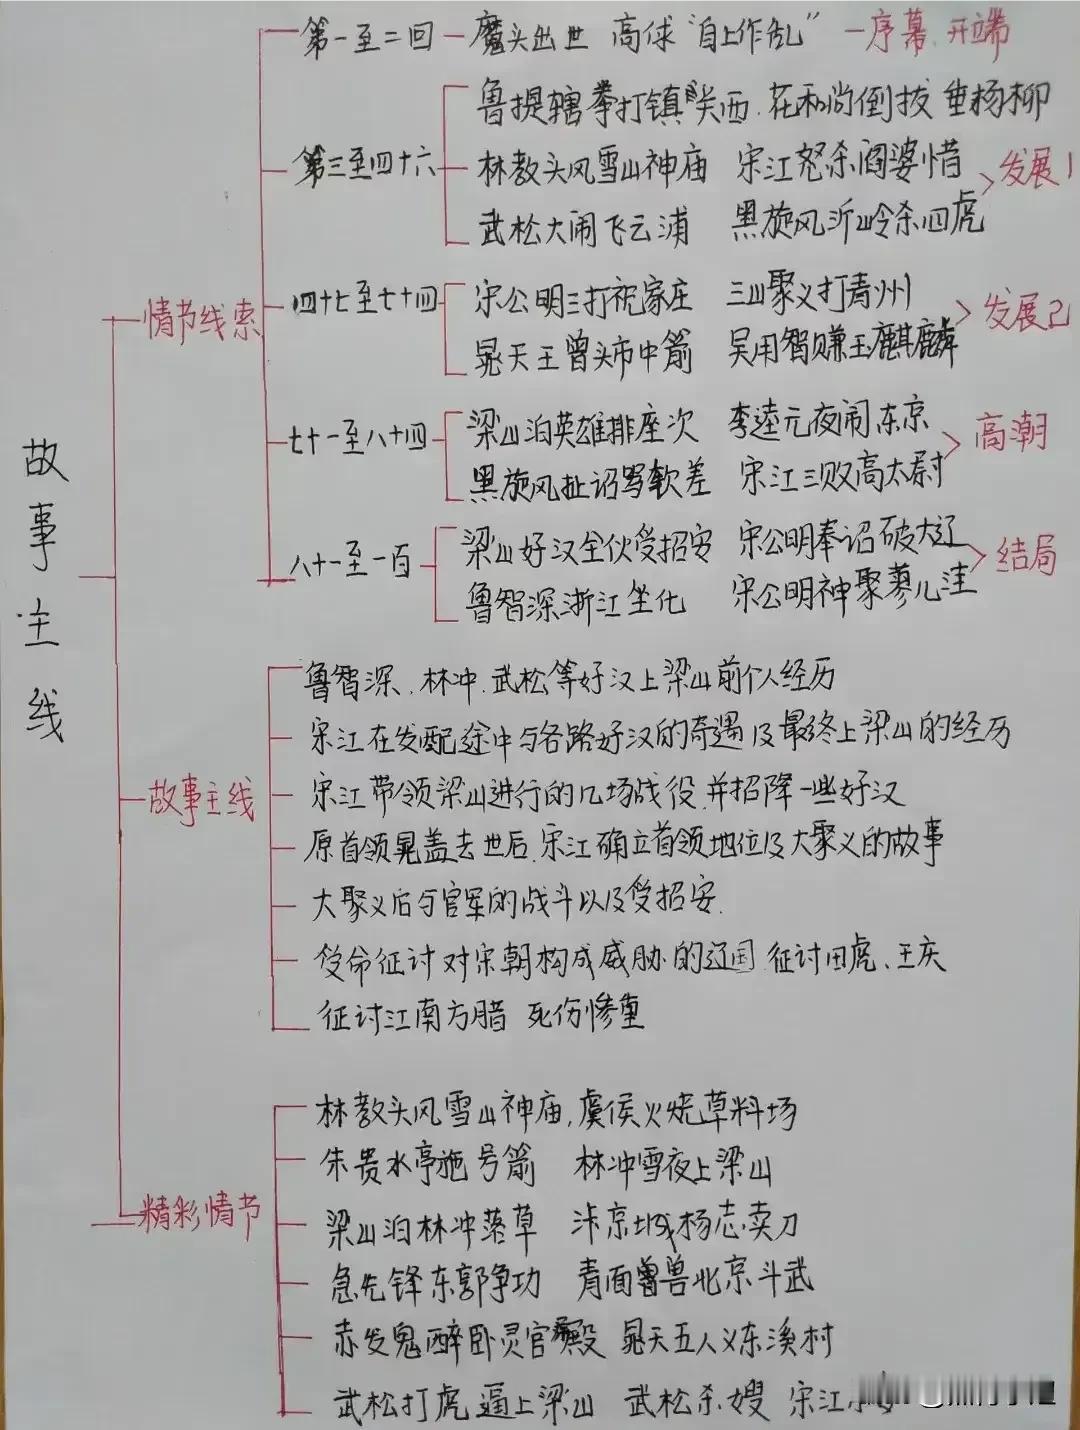 故事主线
情节线索
第一至二回 一 魔头出世 高俅“自上作乱” 一序幕.开端
第三至四十六
鲁提辖拳打镇关西.花和尚倒拔垂杨柳
林教头风雪山神庙 宋江怒杀阎婆惜
武松大闹飞云浦 黑旋风沂岭杀四虎
发展1
四十七至七十四
宋公明三打祝家庄 三山聚义打青州
晁天王曾头市中箭 吴用智赚玉麒麟
发展2
七十一至八十四
梁山泊英雄排座次 李逵元夜闹东京
黑旋风扯诏骂钦差 宋江三败高太尉
高潮
八十一至一百
梁山好汉全伙受招安 宋公明奉诏破大辽
鲁智深浙江坐化 宋公明神聚蓼儿洼
结局
故事主线
鲁智深.林冲.武松等好汉上梁山前个人经历
宋江在发配途中与各路好汉的奇遇及最终上梁山的经历
宋江带领梁山进行的几场战役.并招降一些好汉
原首领晁盖去世后.宋江确立首领地位及大聚义的故事
大聚义后与官军的战斗以及受招安.
受命征讨对宋朝构成威胁的辽国.征讨田虎、王庆
征讨江南方腊 死伤惨重
精彩情节
林教头风雪山神庙,虞侯火烧草料场
朱贵水亭施号箭 林冲雪夜上梁山
梁山泊林冲落草 汴京城杨志卖刀
急先锋东郭争功 青面兽北京斗武
赤发鬼醉卧灵官殿 晁天五人义东溪村
武松打虎逼上梁山 武松杀嫂 宋江